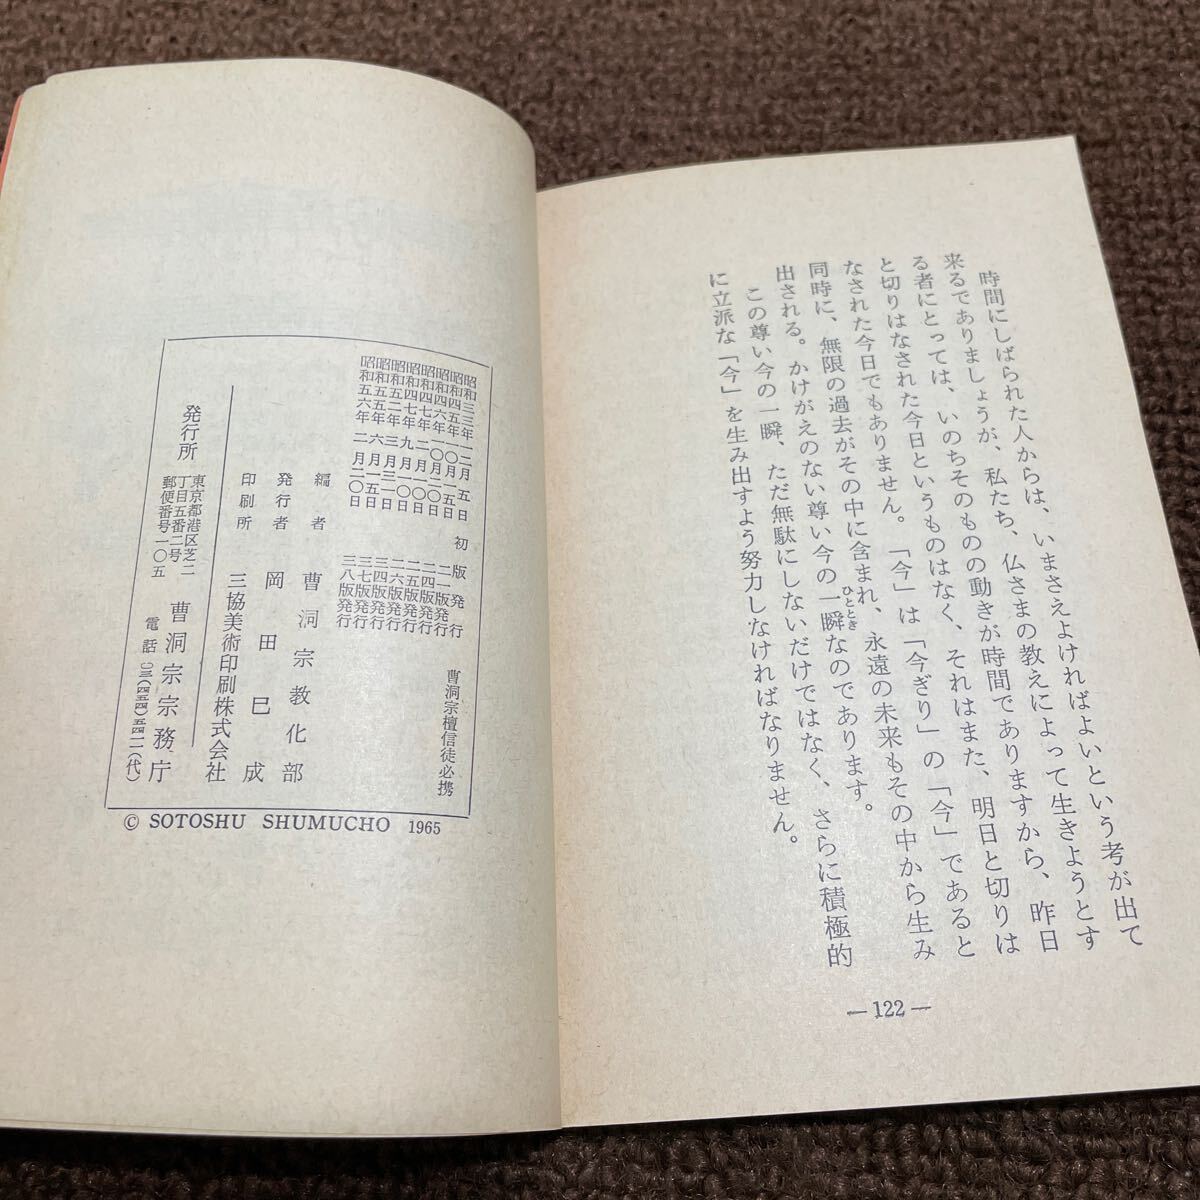 時間にしばられた人からは、いまさえよければよいという考が出て
来るでありましょうが、私たち、仏さまの教えによって生きようとす
る者にとっては、いのちそのものの動きが時間でありますから、昨日
と切りはなされた今日というものはなく、それはまた、明日と切りは
なされた今日でもありません。「今」は「今ぎり」の「今」であると
同時に、無限の過去がその中に含まれ、永遠の未来もその中から生み
出される。かけがえのない尊い今の一瞬なのであります。
ひととき
この尊い今の一瞬、ただ無駄にしないだけではなく、さらに積極的
に立派な「今」を生み出すよう努力しなければなりません。
— 122 —
曹洞宗檀信徒必携
初版発行
昭和四五年 二一版発行
昭和四六年 二四版発行
昭和四七年 二五版発行
昭和四七年 九月 二六版発行
昭和五二年 三月 三四版発行
昭和五五年 六月一五日 三七版発行
昭和五六年 二月二〇日 三八版発行
編者 曹洞宗教化部
発行者 岡田巳成
印刷所 三協美術印刷株式会社
発行所
東京都港区芝二
丁目五番二号
郵便番号一〇五
曹洞宗宗務庁
電話〇三(四五四)五四一一(代)
© SOTOSHU SHUMUCHO 1965